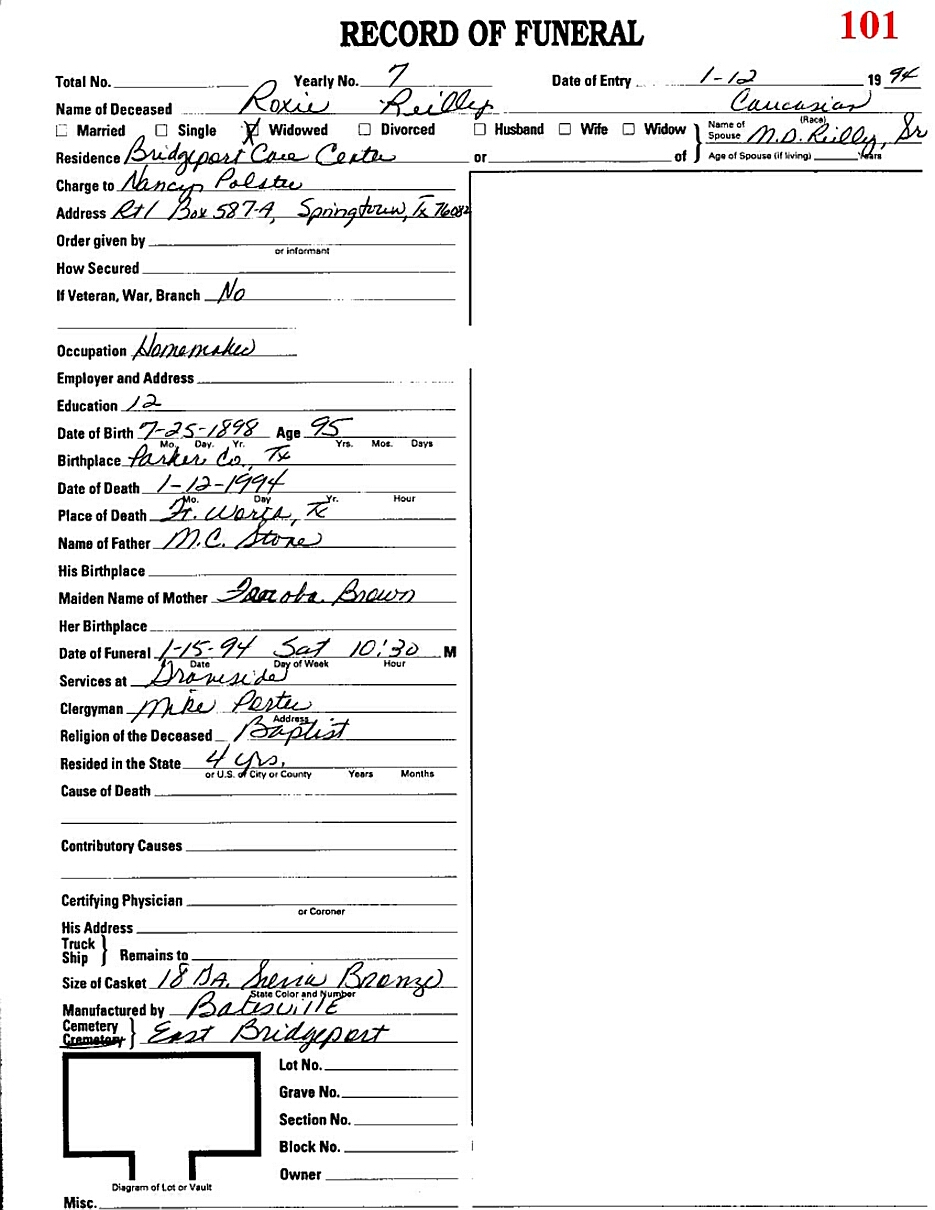 RECORD OF FUNERAL 101
Total No. Yearly No. 7 Date of Entry 1-12 19 94
Name of Deceased Roxie Reilly Caucasian
(Race)
Married Single Widowed Divorced Husband Wife Widow Name of Spouse M.D. Reilly, Sr
Residence Bridgeport Care Center or of Age of Spouse (if living) Years
Charge to Nancy Polster
Address Rt 1 Box 587-A, Springtown, Tx 76082
Order given by
or informant
How Secured
If Veteran, War, Branch No
Occupation Homemaker
Employer and Address
Education 12
Date of Birth 7-25-1898 Age 95
Mo. Day. Yr. Yrs. Mos. Days
Birthplace Parker Co., Tx
Date of Death 1-12-1994
Mo. Day Yr. Hour
Place of Death Ft. Worth, Tx
Name of Father M.C. Stone
His Birthplace
Maiden Name of Mother Brown
Her Birthplace
Date of Funeral 1-15-94 Sat 10:30 M
Date Day of Week Hour
Services at Graveside
Clergyman Mike Porter
Address
Religion of the Deceased Baptist
Resided in the State 4 yrs.
or U.S. of City or County Years Months
Cause of Death
Contributory Causes
Certifying Physician
or Coroner
His Address
Truck
Ship } Remains to
Size of Casket 18 GA. Sierra Bronze
State Color and Number
Manufactured by Batesville
Cemetery
Crematory } East Bridgeport
Lot No.
Grave No.
Section No.
Block No.
Owner
Diagram of Lot or Vault
Misc.